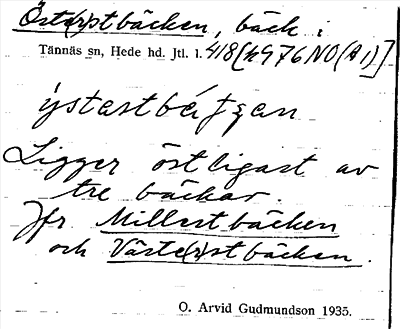 Öst(r)stbäcken, bäck i
Tännäs sn, Hede hd. Jtl. l. 418 [k 976 NO (A1)]
Ligger östligast av
tre bäckar.
Jfr Millestbäcken
och Väste(r)stbäcken.
O. Arvid Gudmundson 1935.